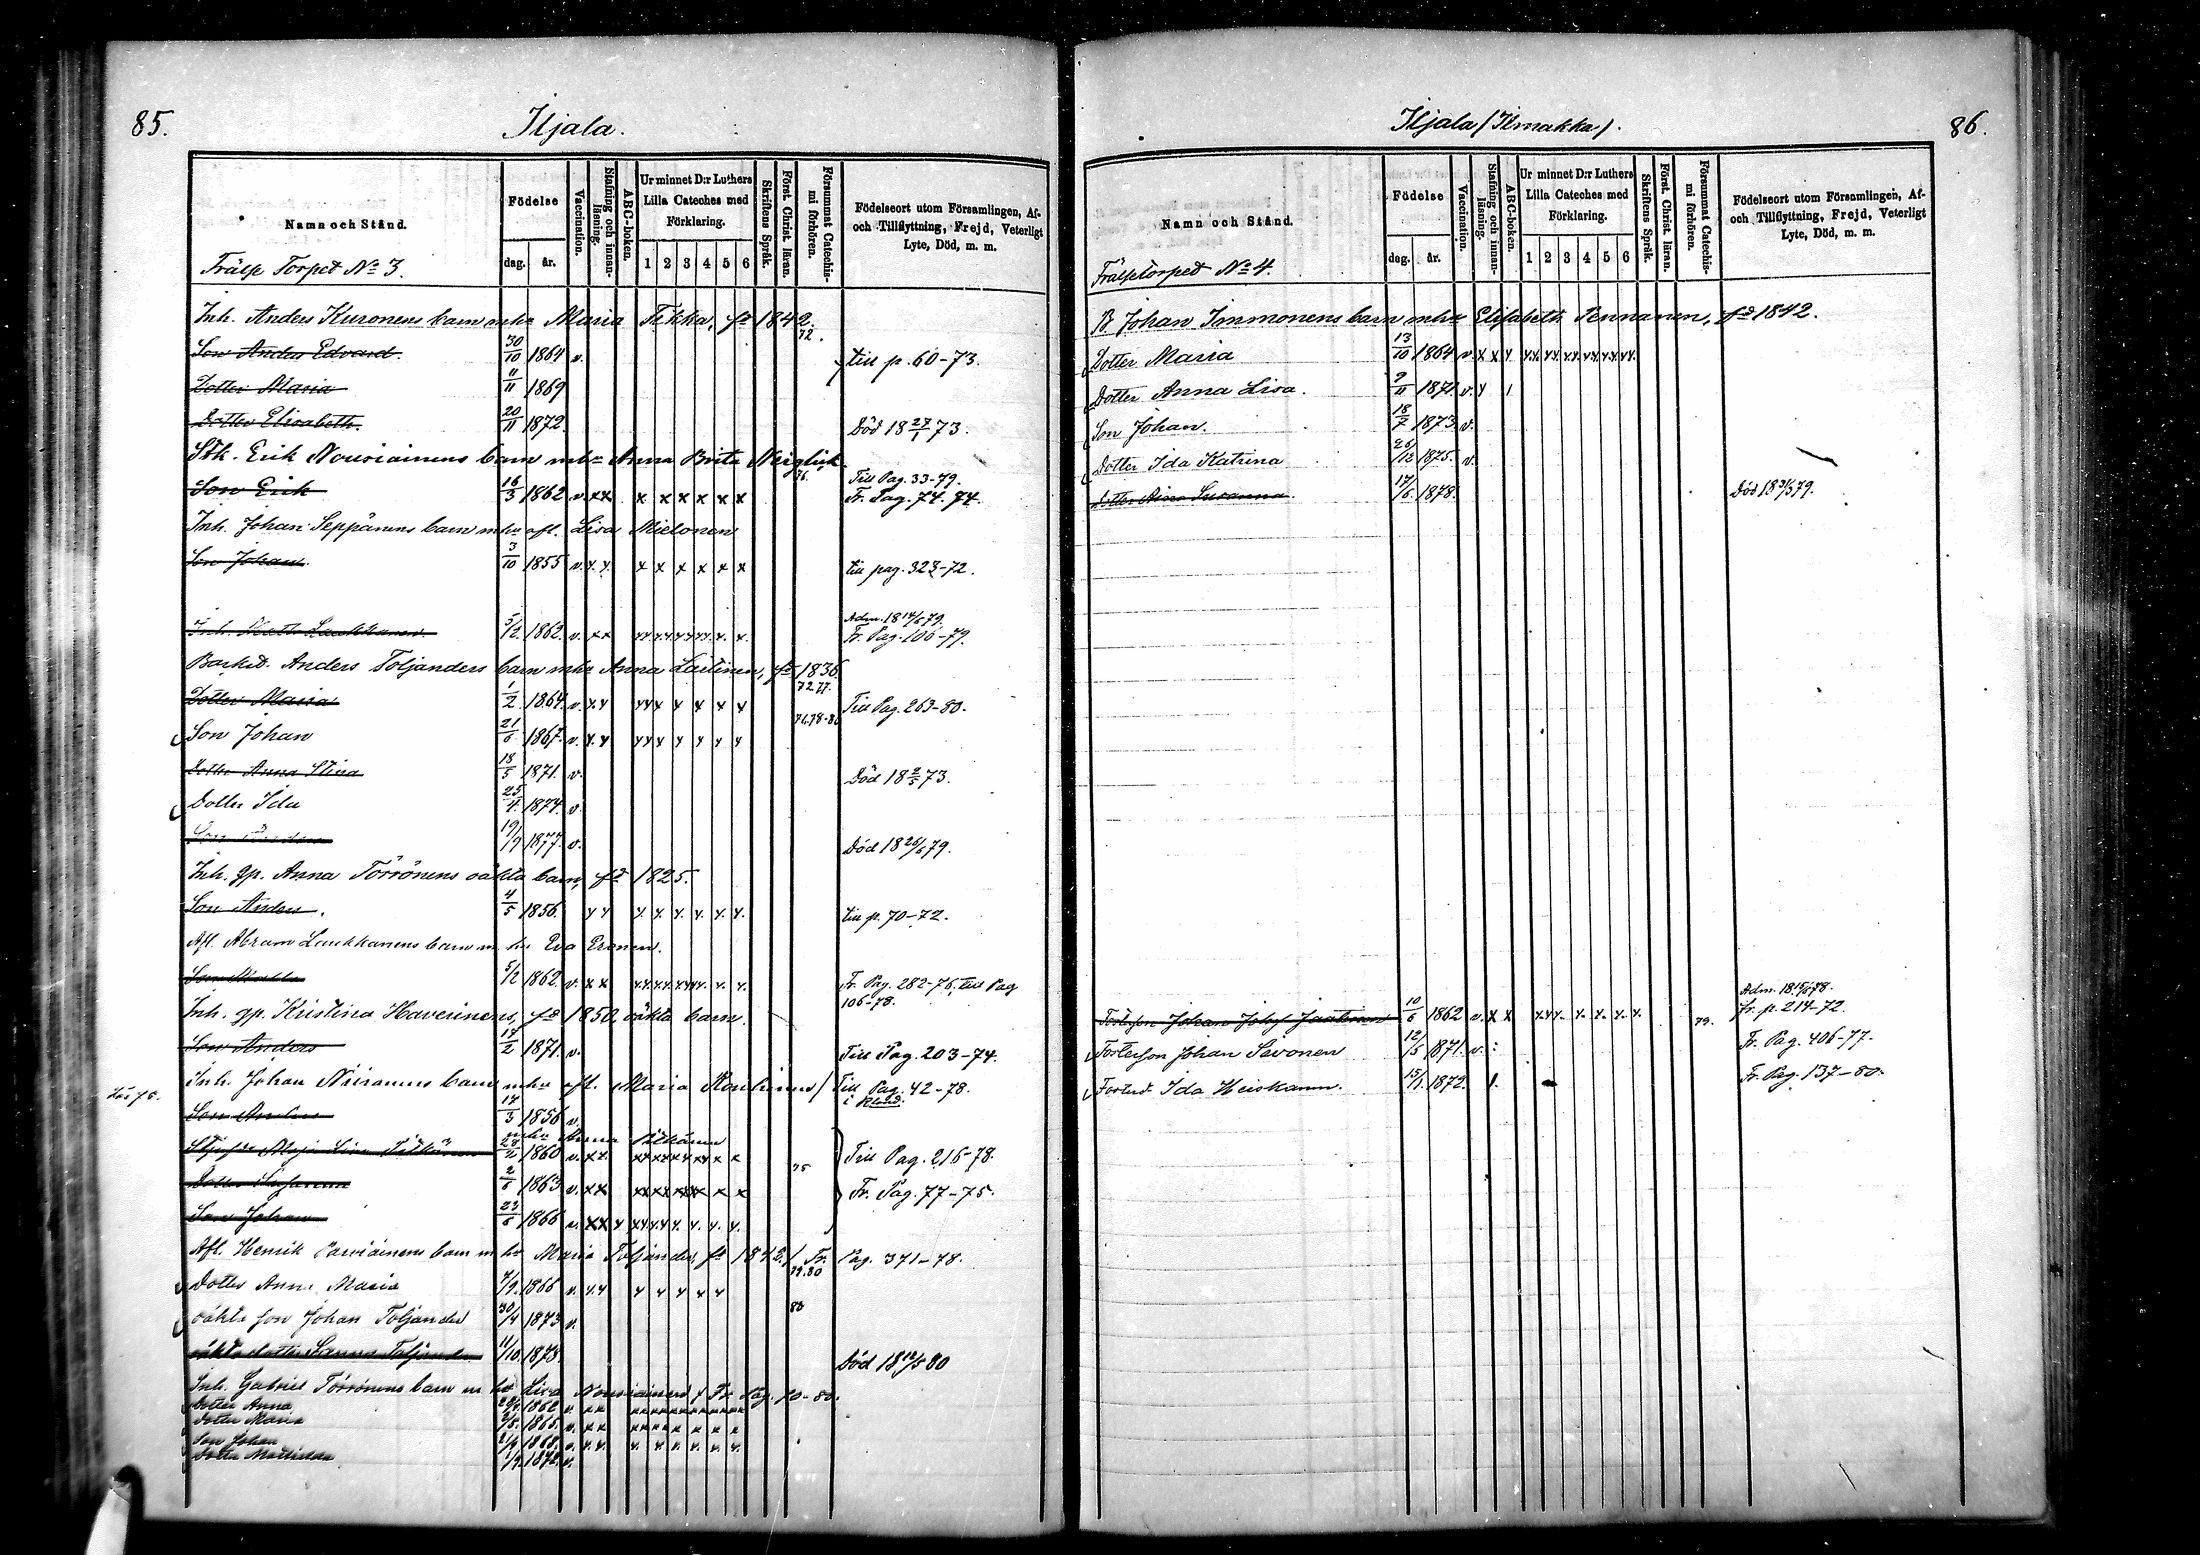 85.
Iljala.
Namn och Stånd.
Födelse
dag. år.
Vaccination.
Stafning och innan-läsning.
ABC-boken.
Ur minnet D:r Luthers Lilla Cateches med Förklaring.
1 2 3 4 5 6
Skriftens Språk.
Först. Christ. läran.
Försummat Catechis-mi förhören.
Födelseort utom Församlingen, Af- och Tillflyttning, Frejd, Veterligt Lyte, Död, m. m.
Frälse Torpet No 3.
Inh. Anders Kuronens barn mhu Maria Tikka, fd 1842.
72.
Son Anders Edvard 30/10 1864 v. till p. 60-73.
Dotter Maria 11/11 1869
Dotter Elisabeth. 20/11 1872. Död 18 27/1 73.
Erik Nousiainens barn mhu Anna Brita
76.
Son Erik 16/3 1862 v. x x x x x x x x Till Pag. 33-79.
Fr. Pag. 74. 74.
Inh. Johan Seppänens barn mhu afl. Lisa Mielonen
Son Johan. 3/10 1855 v. x. x x x x x x x till pag. 323-72.
Adm. 18 14/6 79.
Inh. Laukkanen 5/2 1862. v. x x Fr. Pag. 106-79.
Anders Toljanders barn mhu Anna fd 1836.
72. 77.
Dotter Maria 1/2 1864. v. x x Till Pag. 263-80.
Son Johan 21/6 1867. v. x. x
Dotter Anna Stina 18/5 1871. v. Död 18 2/5 73.
Dotter Ida 25/4 1874. v.
Son 19/9 1877. v. Död 18 26/6 79.
Inh. gp. Anna Törrönens oäkta barn, fd 1825.
Son Anders. 4/5 1856. till p. 70-72.
Afl. Abram Laukkanens barn m. hu Eva Eronen.
Son 5/2 1862. v. x x Fr. Pag. 282-76, till Pag
106-78.
Inh. gp. Kristina Haverinens, fd 1850, oäkta barn.
Son Anders 1871. v. Till Pag. 203-74.
Inh. Johan barn mhu afl. Maria Till Pag. 42-78.
Son 17/3 1856 v.
mhu Anna
1860 v. x x. Till Pag. 216-78.
75
Dotter Susanna 2/6 1863 v. x x Fr. Pag. 77-75.
Son Johan 1866 v. x x x
Afl. Henrik Parviainens barn m hu Maria Toljander, fd 1842. / Fr. Pag. 371-78.
79. 80
Dotter Anna Maria 7/9. 1866 v. x x
80
oäkta son Johan Toljander 30/4 1873 v.
oäkta dotter Sanna Toljander 11/10. 1878. Död 18 12/5 80
Inh. Gabriel Törrönens barn m hu Lisa Nousiainen / Fr. Pag. 70-80.
Dotter Anna 1862 v. x x
Dotter Maria 1865. v. x x
Son Johan 1868. v. x. x.
Dotter Mathilda 1/9. 1872. v.
Iljala (Ilmakka).
86.
Namn och Stånd.
Födelse
dag. år.
Vaccination.
Stafning och innan-läsning.
ABC-boken.
Ur minnet D:r Luthers Lilla Cateches med Förklaring.
1 2 3 4 5 6
Skriftens Språk.
Först. Christ. läran.
Försummat Catechis-mi förhören.
Födelseort utom Församlingen, Af- och Tillflyttning, Frejd, Veterligt Lyte, Död, m. m.
Frälsetorpet No 4.
B. Johan Immonens barn mhu Elisabeth Pennanen, fd 1842.
Dotter Maria 13/10 1864 v. x x x
Dotter Anna Lisa. 9/11 1871. v.
Son Johan. 18/7 1873. v.
Dotter Ida Katrina 26/12 1875. v.
Dotter Susanna. 17/6 1878. Död 18 31/3 79.
Adm. 18 15/6 78.
Johan 10/6 1862 v. x x 79. fr. p. 214-72.
Fosterson Johan Savonen 12/5 1871. v. Fr. Pag. 406-77.
Fosterd. Ida Heiskanen. 15/1. 1872. Fr. Pag. 137-80.